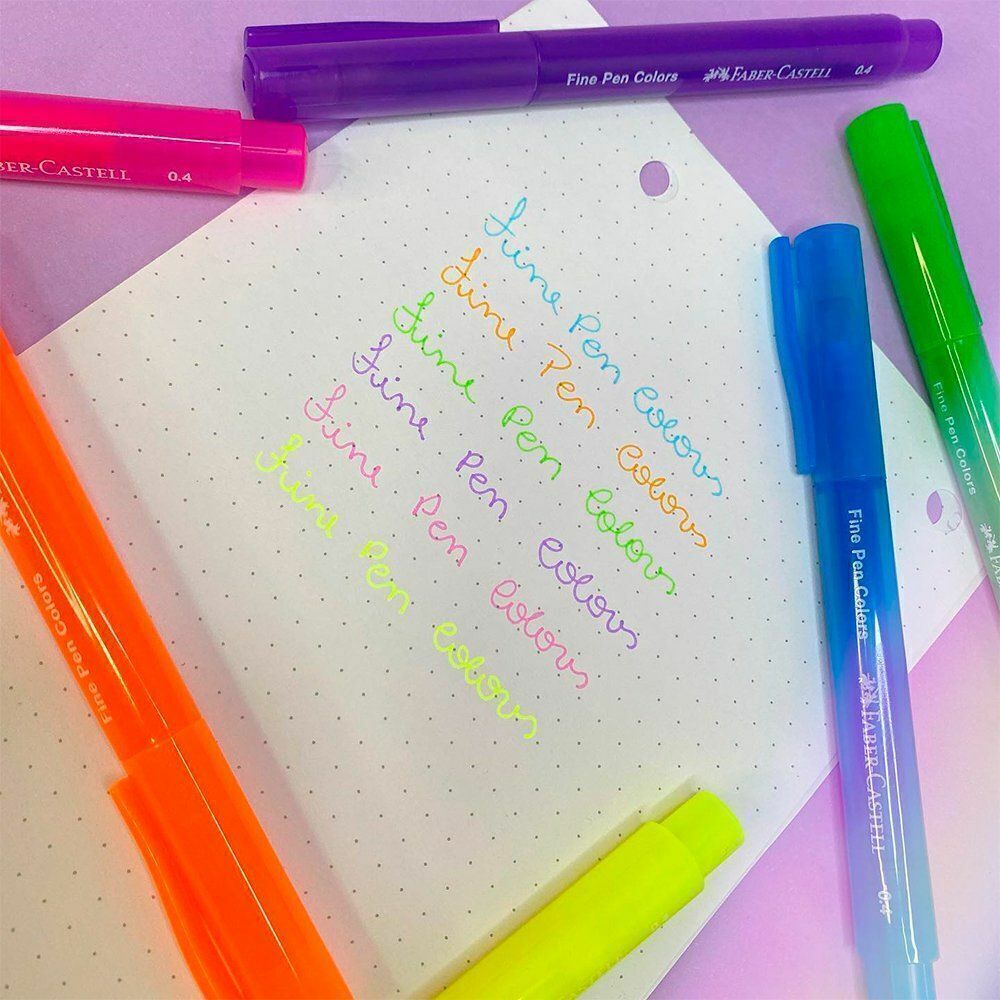 Fine Pen Colors FABER-CASTELL 0.4
BER-CASTELL 0.4
Fine Pen Colors
Fine Pen Colors
Fine Pen Colors
Fine Pen Colors
Fine Pen Colors
Fine Pen Colors
Fine Pen Colors
Fine Pen Colors FABER-CASTELL 0.4
Fine Pen Colors FA